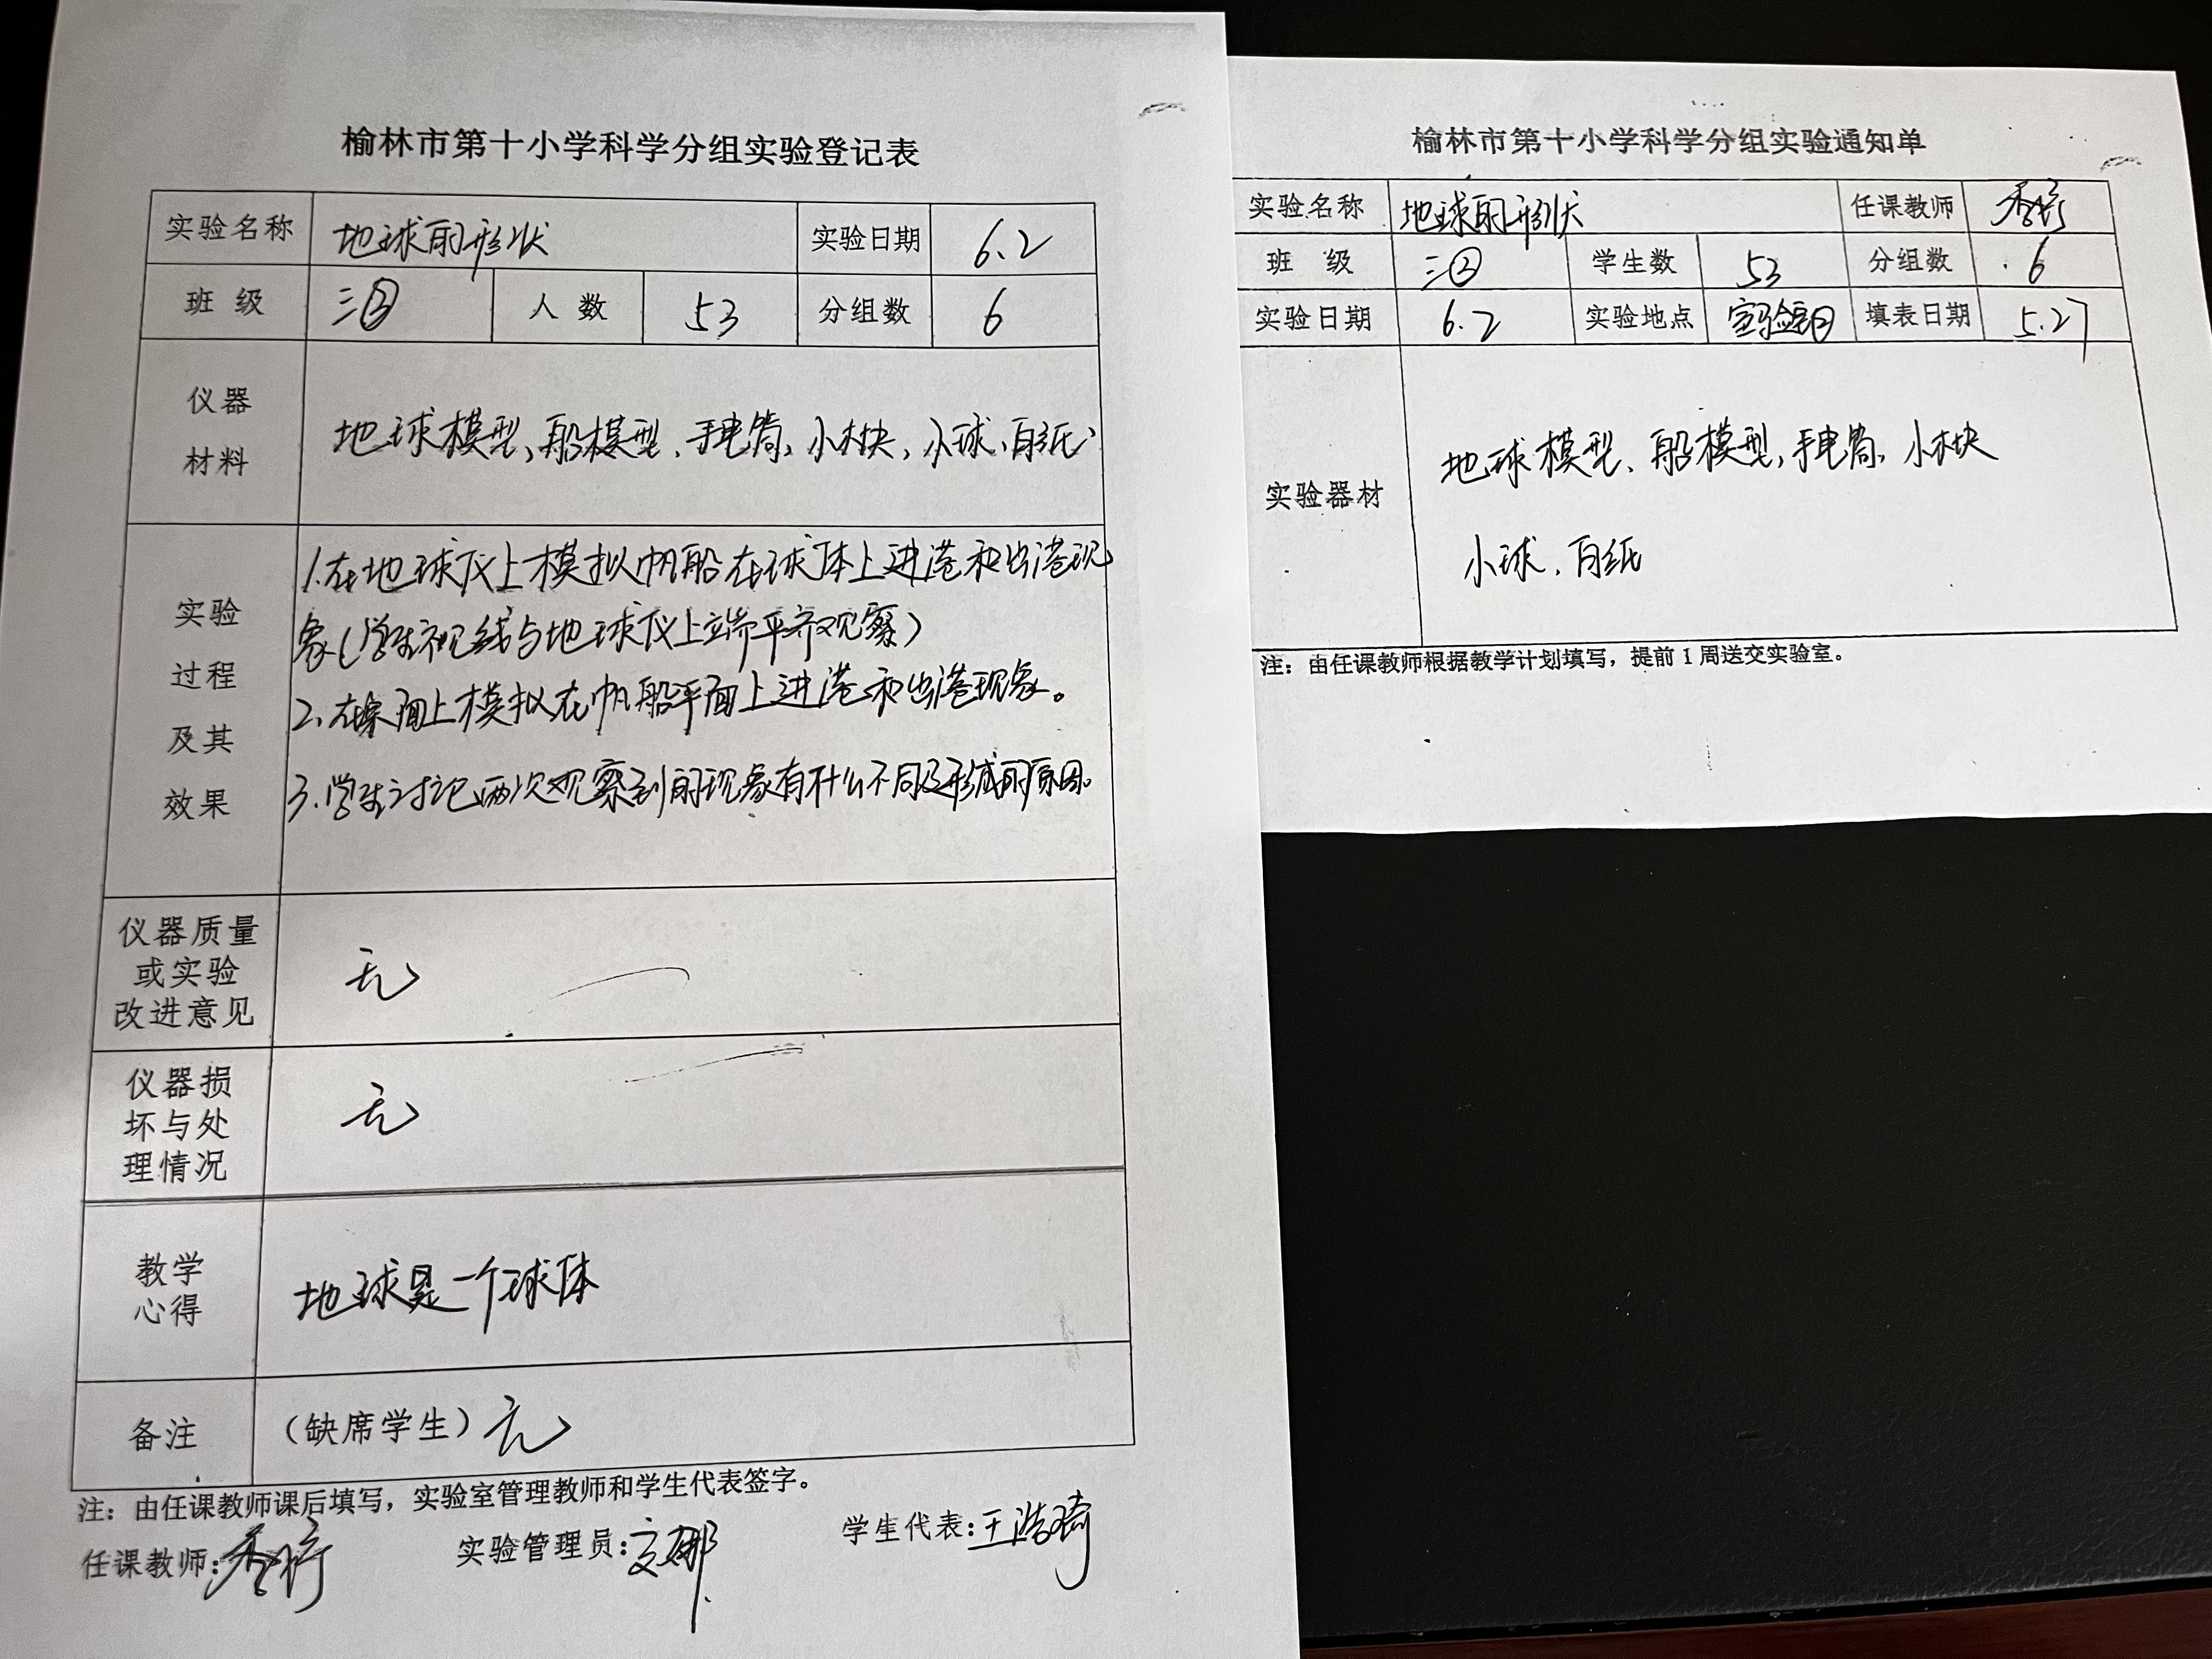 榆林市第十小学科学分组实验登记表
实验名称 地球的形状 实验日期 6.2
班 级 三② 人 数 53 分组数 6
仪器
材料
地球模型、船模型、手电筒、小木块、小球、白纸
实验
过程
及其
效果
1.在地球仪上模拟帆船在球体上进港和出港现
象(学生视线与地球仪上端平齐观察)
2.在桌面上模拟在帆船平面上进港和出港现象。
3.学生讨论两次观察到的现象有什么不同及形成的原因。
仪器质量
或实验
改进意见
无
仪器损
坏与处
理情况
无
教学
心得
地球是一个球体
备注 (缺席学生) 无
注：由任课教师课后填写，实验室管理教师和学生代表签字。
任课教师： 实验管理员： 学生代表：王浩琦
榆林市第十小学科学分组实验通知单
实验名称 地球的形状 任课教师
班 级 三② 学生数 53 分组数 6
实验日期 6.2 实验地点 填表日期 5.27
实验器材
地球模型、船模型、手电筒、小木块
小球、白纸
注：由任课教师根据教学计划填写，提前1周送交实验室。